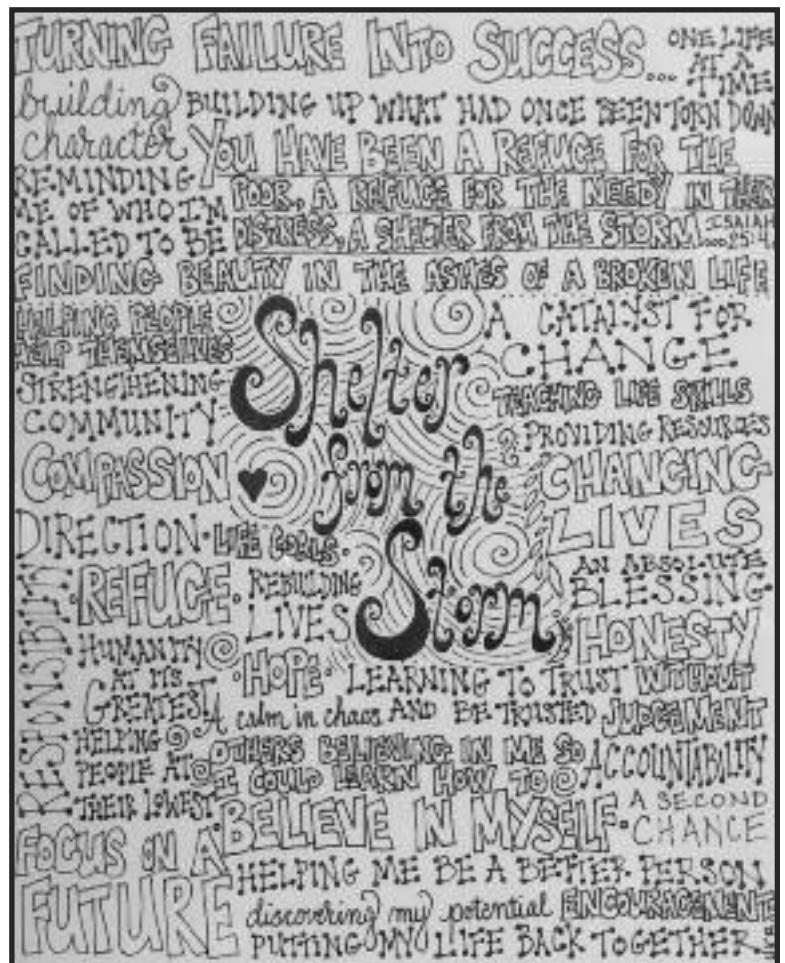 TURNING FAILURE INTO SUCCESS...
ONE LIFE
AT A
TIME
building
character
BUILDING UP WHAT HAD ONCE BEEN TORN DOWN
YOU HAVE BEEN A REFUGE FOR THE
POOR, A REFUGE FOR THE NEEDY IN THEIR
DISTRESS, A SHELTER FROM THE STORM...
ISAIAH
25:4
REMINDING
ME OF WHO I'M
CALLED TO BE
FINDING BEAUTY IN THE ASHES OF A BROKEN LIFE
HELPING PEOPLE
HELP THEMSELVES
STRENGTHENING
COMMUNITY
COMPASSION
Shelter
from the
Storm
A CATALYST FOR
CHANGE
TEACHING LIFE SKILLS
PROVIDING RESOURCES
CHANGING
LIVES
AN ABSOLUTE
BLESSING
HONESTY
DIRECTION • LIFE GOALS •
RESPONSIBILITY
• REFUGE •
REBUILDING
LIVES
HUMANITY
AT ITS
GREATEST
• HOPE •
LEARNING TO TRUST WITHOUT
AND BE TRUSTED JUDGEMENT
A calm in chaos
HELPING
PEOPLE AT
THEIR LOWEST
OTHERS BELIEVING IN ME SO
I COULD LEARN HOW TO
BELIEVE IN MYSELF •
ACCOUNTABILITY
A SECOND
CHANCE
FOCUS ON A
FUTURE
HELPING ME BE A BETTER PERSON
discovering my potential ENCOURAGEMENT
PUTTING MY LIFE BACK TOGETHER